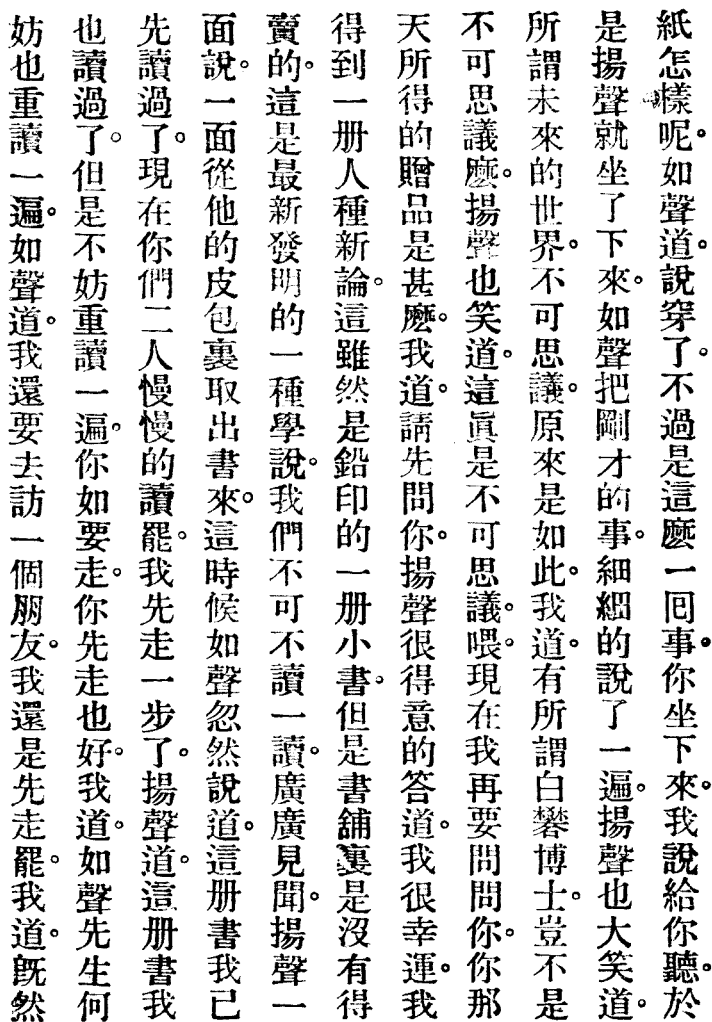 紙怎樣呢。如聲道。說穿了。不過是這麽一囘事。你坐下來。我說給你聽。於
是揚聲就坐了下來。如聲把剛才的事。細細的說了一遍。揚聲也大笑道。
所謂未來的世界。不可思議。原來是如此。我道。有所謂白礬博士。豈不是
不可思議麽。揚聲也笑道。這眞是不可思議。喂。現在我再要問問你。你那
天所得的贈品是甚麽。我道。請先問你。揚聲很得意的答道。我很幸運。我
得到一册人種新論。這雖然是鉛印的一册小書。但是書舖裏是沒有得
賣的。這是最新發明的一種學說。我們不可不讀一讀。廣廣見聞。揚聲一
面說。一面從他的皮包裏取出書來。這時候如聲忽然說道。這册書我已
先讀過了。現在你們二人慢慢的讀罷。我先走一步了。揚聲道。這册書我
也讀過了。但是不妨重讀一遍。你如要走。你先走也好。我道。如聲先生何
妨也重讀一遍。如聲道。我還要去訪一個朋友。我還是先走罷。我道。旣然